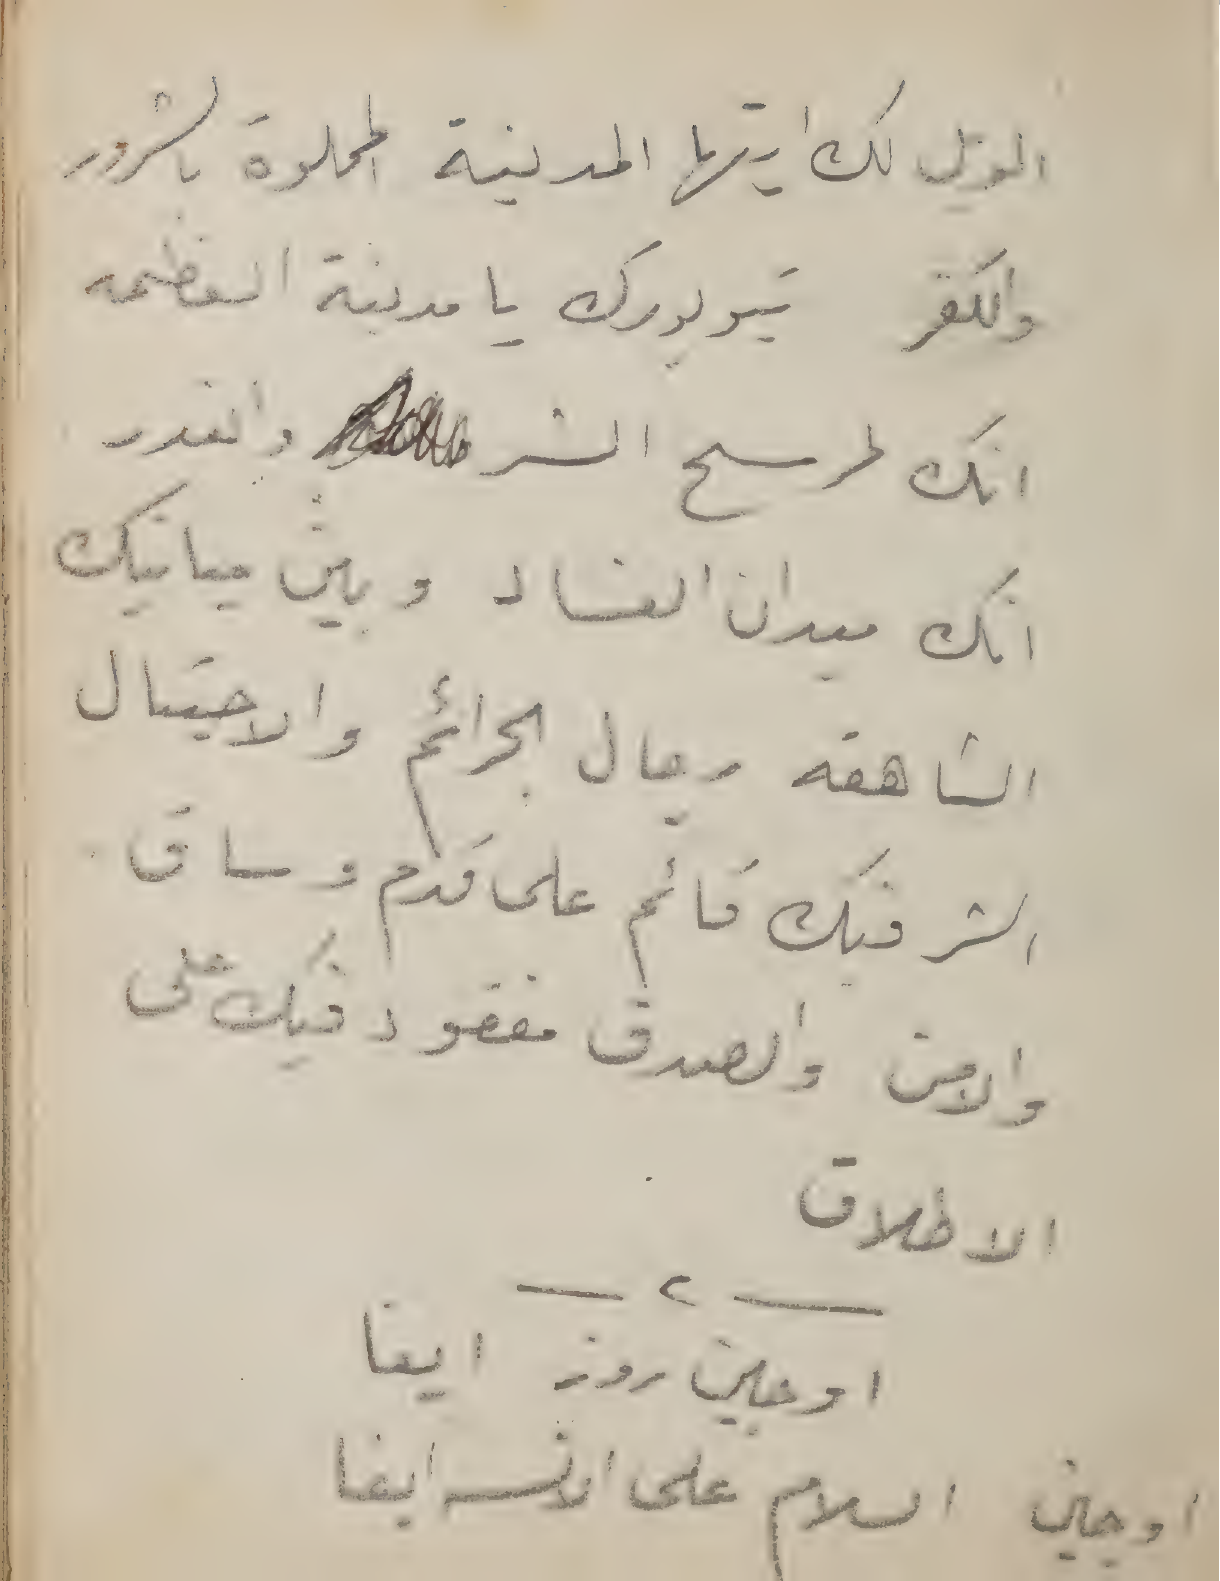 الويل لك ايتها المدينة المملوة بالشرور
والكفر نيويورك يا مدينة العظمه
انك لمرسح الشر والغدر
انك ميدان الفساد وبين مبانيك
الشاهقه رجال الجرائم والاحتيال
الشر فيك قائم على قدم وساق
والامن والصدق مفقود فيك على
الاطلاق
— ٢ —
اوجين روز ايفا
اوجين السلام على الانسه ايفا